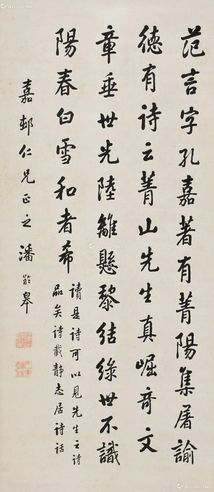 范言字孔嘉著有菁陽集屠諭
德有诗云菁山先生真崛奇文
章垂世先陸離懸黎結綠世不識
陽春白雪和者希
讀是詩可以見先生之詩
品矣詩載静志居詩話
嘉邨仁兄正之 潘齡皋